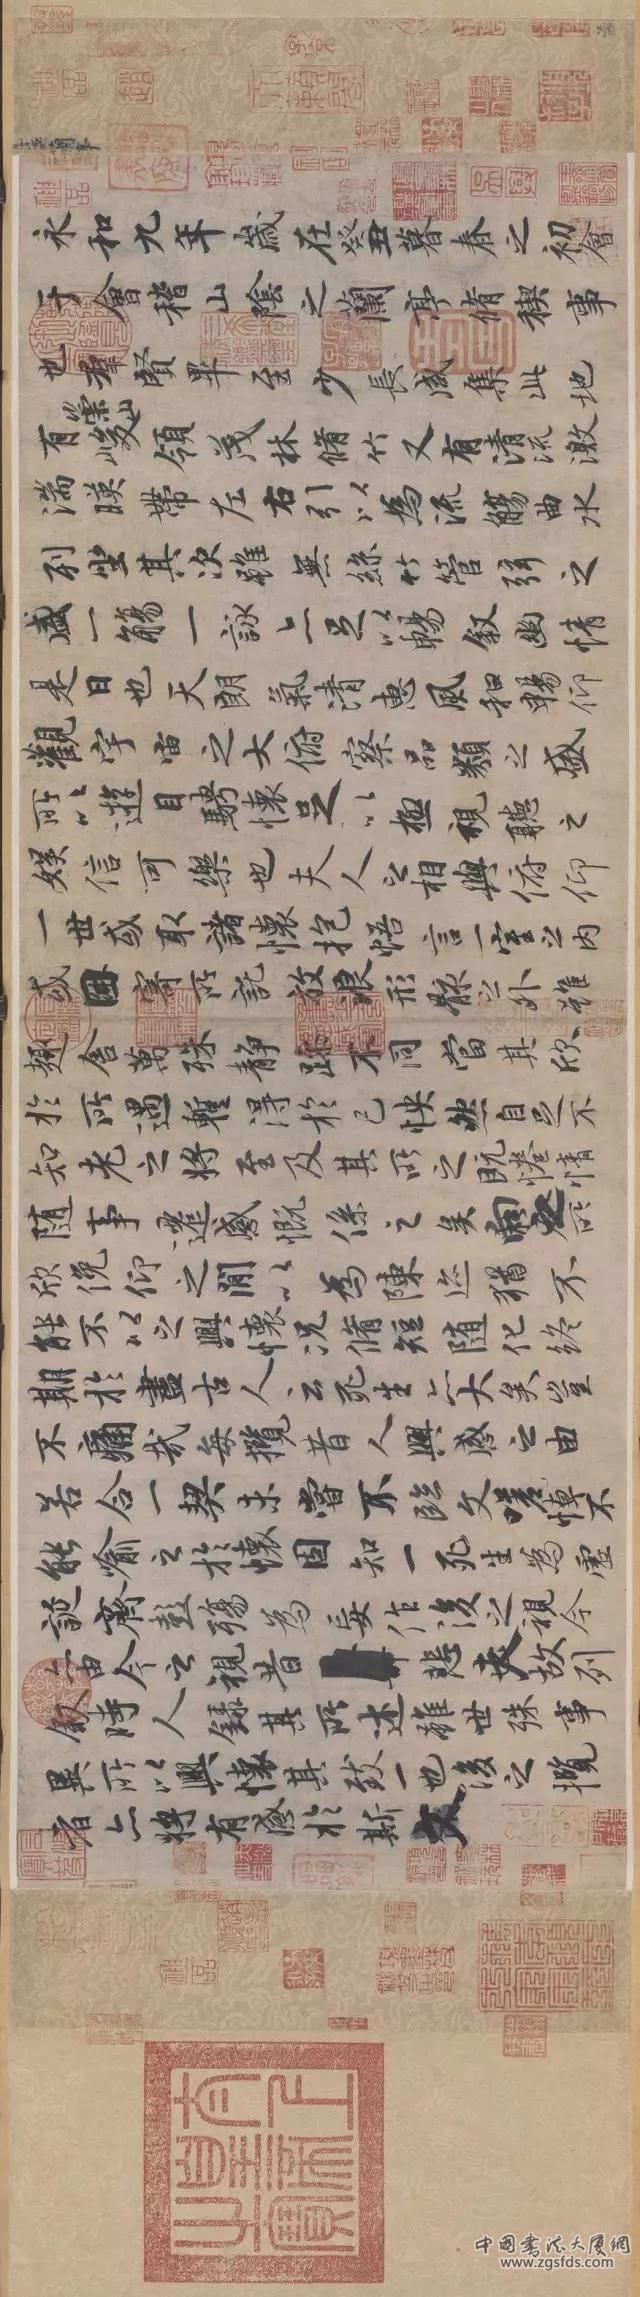 永和九年歲在癸丑暮春之初會
于會稽山陰之蘭亭脩稧事
也群賢畢至少長咸集此地
有崇山峻領茂林脩竹又有清流激
湍暎帶左右引以為流觴曲水
列坐其次雖無絲竹管弦之
盛一觴一詠亦足以暢敘幽情
是日也天朗氣清惠風和暢仰
觀宇宙之大俯察品類之盛
所以遊目騁懷足以極視聽之
娛信可樂也夫人之相與俯仰
一世或取諸懷抱悟言一室之內
或因寄所託放浪形骸之外雖
趣舍萬殊靜躁不同當其欣
於所遇暫得於己怏然自足不
知老之將至及其所之既惓情
隨事遷感慨係之矣向之所
欣俛仰之閒以為陳迹猶不
能不以之興懷況脩短隨化終
期於盡古人云死生亦大矣豈
不痛哉每攬昔人興感之由
若合一契未嘗不臨文嗟悼不
能喻之於懷固知一死生為虛
誕齊彭殤為妄作後之視今
亦由今之視昔悲夫故列
敘時人錄其所述雖世殊事
異所以興懷其致一也後之攬
者亦將有感於斯文
中国书法大厦網
www.zgsfds.com